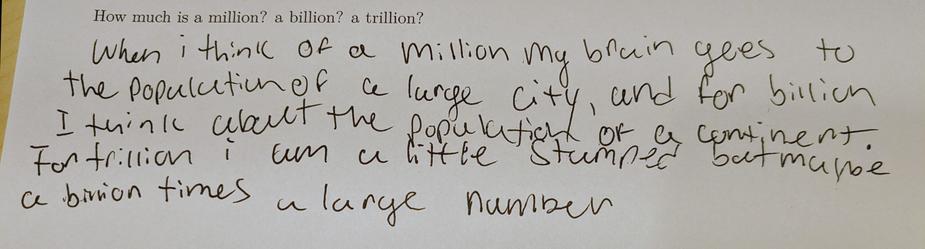 How much is a million? a billion? a trillion?
When i think of a million my brain goes to
the population of a large city, and for billion
I think about the population of a continent.
For trillion i am a little stumped but maybe
a billion times a large number